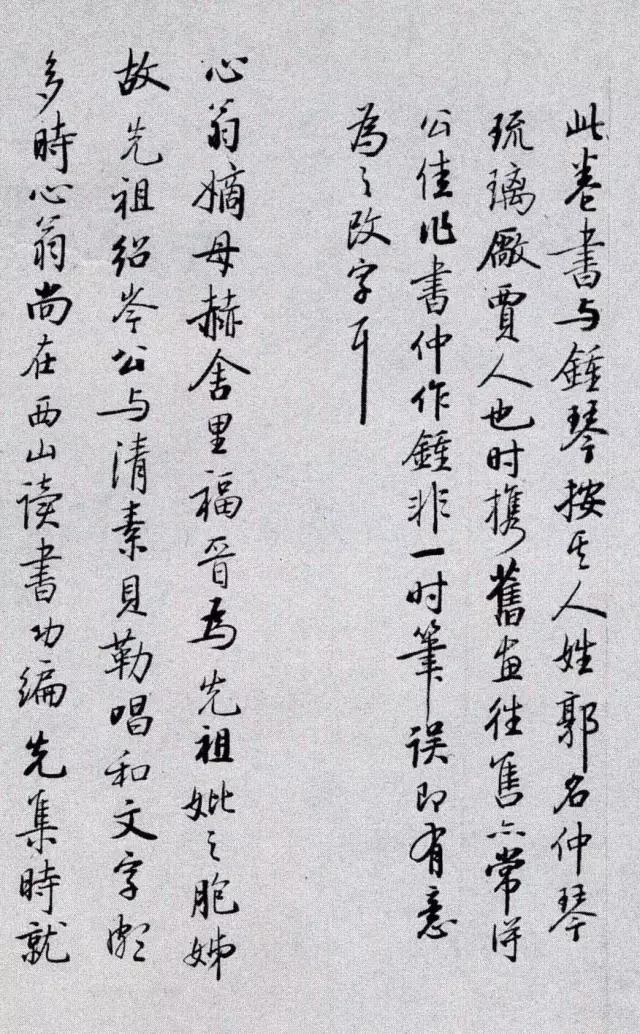 此卷書与鍾琴按其人姓郭名仲琴
琉璃廠賈人也时携舊画往售亦常得
公佳作書仲作鍾非一时筆误即有意
為之改字耳
心翁嫡母赫舍里福晋為先祖妣之胞姊
故先祖绍岑公与清素貝勒唱和文字頗
多時心翁尚在西山读書功編先集時就